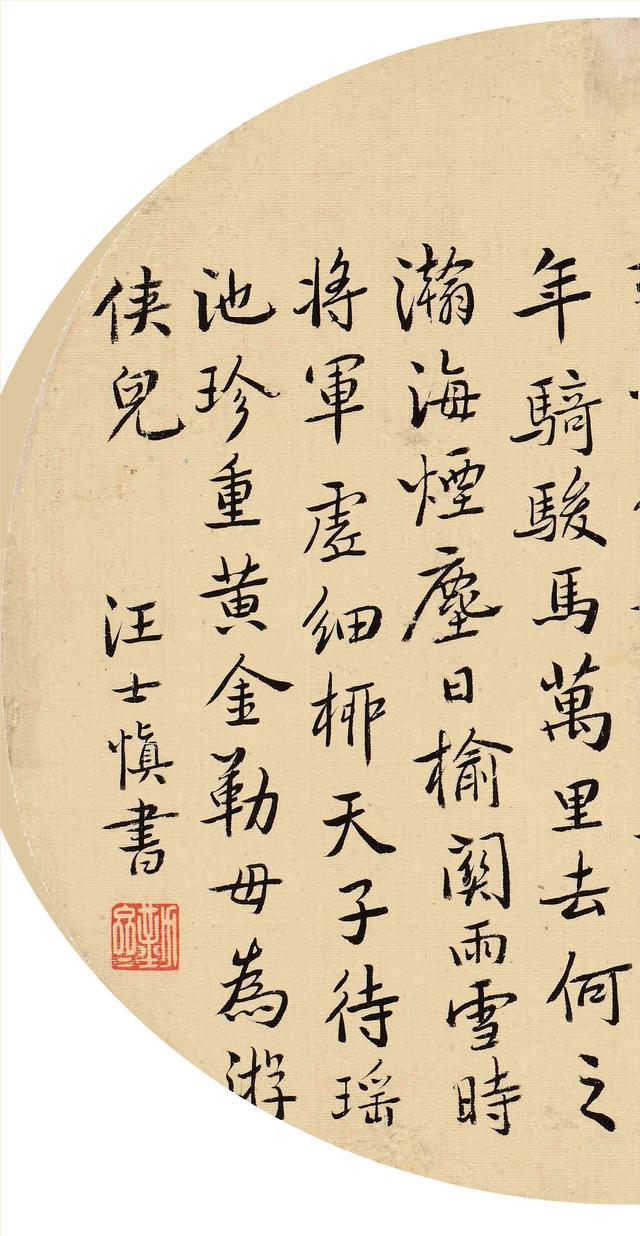 年騎駿馬萬里去何之
瀚海煙塵日榆關雨雪時
將軍虛細柳天子待瑤
池珍重黃金勒毋為游
俠兒
汪士慎書